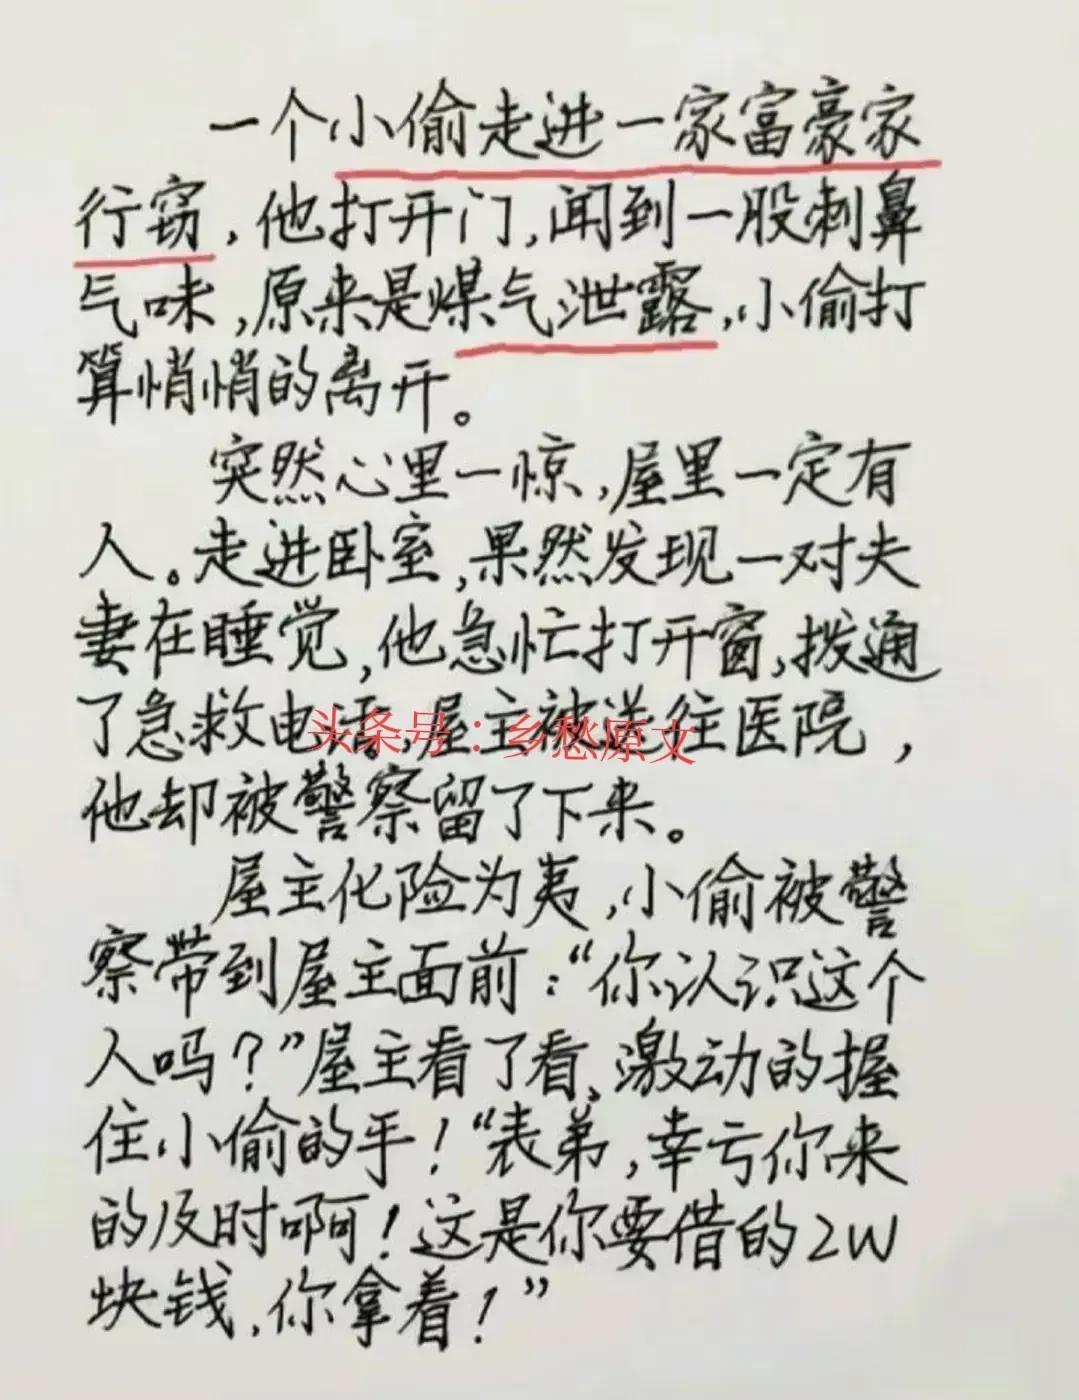 一个小偷走进一家富豪家
行窃，他打开门，闻到一股刺鼻
气味，原来是煤气泄露，小偷打
算悄悄的离开。
突然心里一惊，屋里一定有
人。走进卧室，果然发现一对夫
妻在睡觉，他急忙打开窗，拨通
了急救电话，屋主被送往医院，
头条号：乡愁原文
他却被警察留了下来。
屋主化险为夷，小偷被警
察带到屋主面前：“你认识这个
人吗？”屋主看了看，激动的握
住小偷的手！“表弟，幸亏你来
的及时啊！这是你要借的2W
块钱，你拿着！”